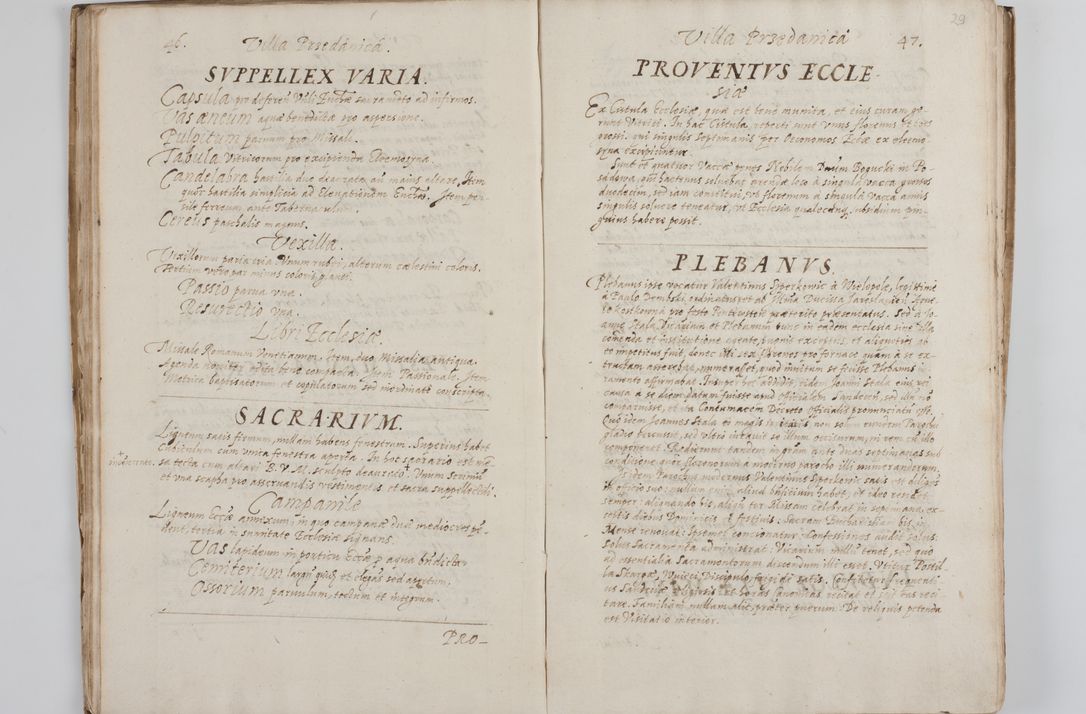 46. Villa Przedanica.
SVPPELLEX VARIA.
Capsula pro deferen Vəli Euchae sacramēto ad infirmos.
Vas aneum aquae benedictae pro aspersione.
Pulpitum paruum pro Missale.
Tabula Vitricorum pro excipienda Eleemosyna.
Candelabra hastilia duo deaurata ad maius altare, Item
quōr hastilia simplicia ad Eleuationem Euchae. Item pen
sile ferreum ante Tabernaculum.
Cereus paschalis magnus.
Vexilla.
Vexillorum paria tria. Vnum rubri, alterum caelestini coloris.
Tertium vero par minus coloris
Passio parua vna.
Resurectio vna.
Libri Ecclesiae.
Missale Romanum Venetianum. Item, duo Missalia antiqua.
Agenda noviter edita bene compacta. Item Passionale. Item
Metrica baptisatorum et copulatorum sed inordinate conscripta.
SACRARIVM.
Ligneum satis firmum, nullam habens fenestram. Superius habet
Cubiculum cum vnica fenestra aperta. In hoc sacrario est me
+ incinerat.
sa tecta cum altari B. V. M. sculpto deaurato. Vnum Scrinium
et vna scapha pro asseruandis vestimentis et sacra suppellectili.
Campanile
Ligneum Ecclae annexum, in quo campanae duae mediocres pe
dent, tertia in sumitate Ecclesiae signans.
Vas lapideum in porticu Ecclae p aqua bndicta.
Cemiterium largū quidē et elegās sed apertum.
Ossorium paruulum, tectum et integrum.
PRO-
29
Villa Przedanica 47.
PROVENTVS ECCLE-
siae
Ex Cistula Ecclesiae, quae est bene munita, et eius curam ge-
runt Vitrici. In hac Cistula reperti sunt vnus florenus et tres
grossi. qui singulis septimanis per Oeconomos Eclae ex eleemo
syna excipiuntur.
Sunt et quatuor Vaccae penes Nobilem Dnum Bogucki in Po-
sadowa, qui hactenus soluebat arendae loco à singula vacca grossos
duodecim, sed iam constitui, vt florenum à singula Vacca annis
singulis soluere teneatur, vt Ecclesia qualecunq. subsidium pin-
guius habere possit.
PLEBANVS.
Plebanus ipse vocatur Valentinus Piperkovic à Wielopole, legittime
à Paulo Dembski ordinatus, et ab Illma Ducissa Jaroslavien Anna
Kostkowna pro festo Pentecostes praeterito praesentatus. Sed à Jo-
anne Skala Vicarium et Plebanum tunc in eadem ecclesia sine vlla
comenda et institutione agente, pugnis exceptus, et aliquoties ab
eo impetitus fuit, donec illi sex florenos pro fornace quam à se ex-
tructam asserebat, numerasset, quod inuitum se fecisse Plebanus iu
ramento affirmabat. Insuper hoc addidit, eidem Joanni Skala eius rei
causa à se diem datam fuisse apud Officialem Sandecen, sed illum nō
comparuisse, et ita Contumacem Decreto Officialis pronunciatū esse.
Quo idem Joannes Skala eò magis irritatus non solum eundem Parochū
gladio percussit, sed vltro iurauit se illum occisurum, ni rem cū illo
componeret. Redierunt tandem in gram ante duas septimanas sub
conditione quōr florenorum à moderno parocho illi numerandorum.
Isdem Parochus modernus Valentinus Piperkovic satis est diligēs
in officio suo: nullum enim aliud bnficium habet, et ideo residet
semper: aliquando bis, aliqū ter Missam celebrat in septimana, ex-
ceptis diebus Dominicis et festiuis: Sacram Eucharistiam bis in
Mense renouat: Ipsemet concionatur: Confessiones audit solus:
Solus Sacramenta administrat: Vicarium nullū tenet, sed quo
ad essentialia Sacramentorum discendum illi esset. Vtitur Postil
la Skargae, Wuieci, Discipulo, frigide satis. Confitetur frequenti
us Sandeciae et horas Canonicas recitat et scit eas reci
tare. Familiam nullam alit, praeter puerum. De reliquis petenda
est Visitatio interior.